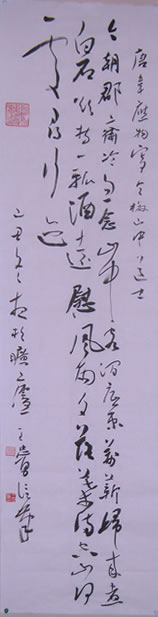 唐韋應物寄全椒山中道士
今朝郡齋冷忽念山中客澗底束荊薪歸來煮
白石欲持一瓢酒遠慰風雨夕落葉滿空山何
處尋行迹
乙丑